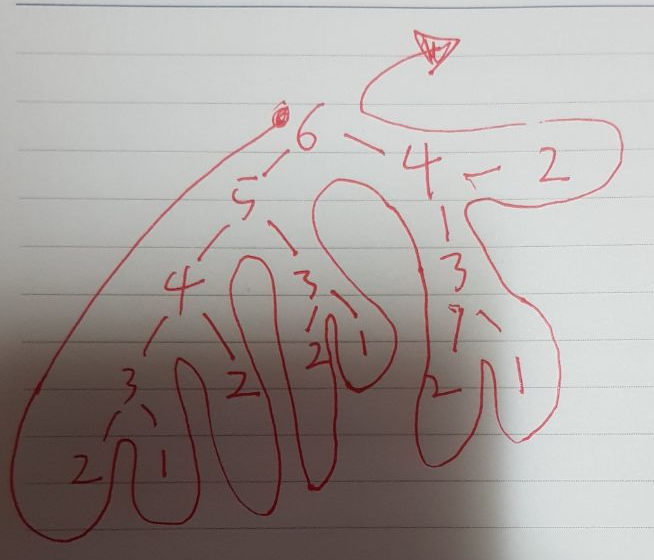 6
4 2
5
4 3 3
3 2 2 1 2 1
2 1